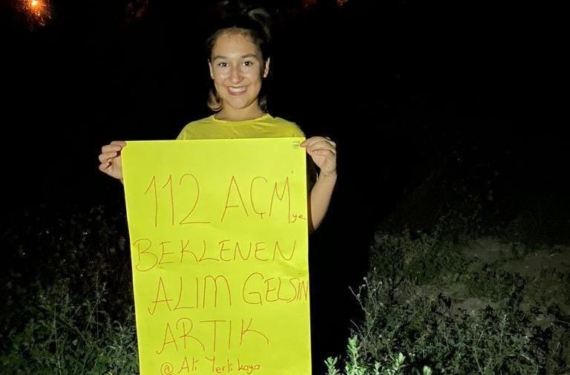 112 AÇM'ye
BEKLENEN
ALIM GELSİN
ARTIK
@Ali Yerlikaya